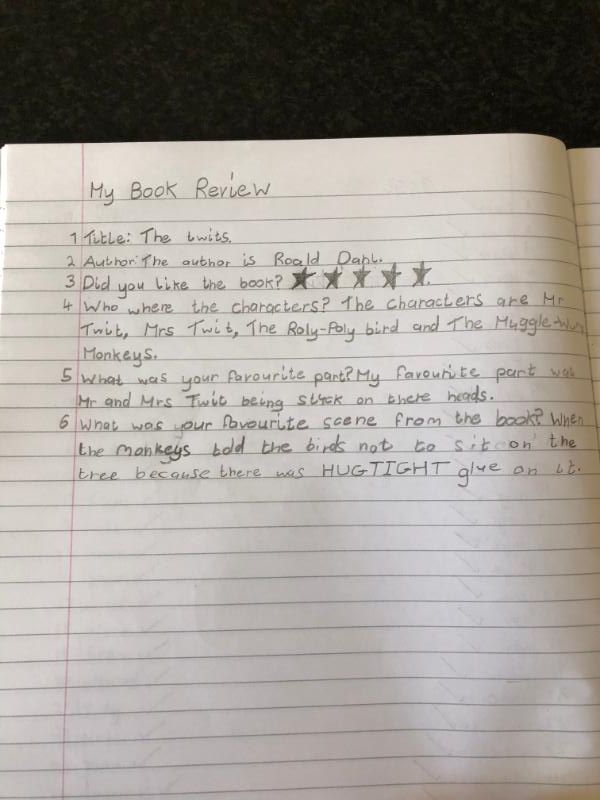 My Book Review
1 Title: The twits.
2 Author: The author is Roald Dahl.
3 Did you like the book? ★ ★ ★ ★ ★.
4 Who where the characters? The characters are Mr
Twit, Mrs Twit, The Roly-Poly bird and The Muggle-Wum
Monkeys.
5 What was your favourite part? My favourite part was
Mr and Mrs Twit being stuck on there heads.
6 What was your favourite scene from the book? When
the monkeys told the birds not to sit on the
tree because there was HUGTIGHT glue on it.